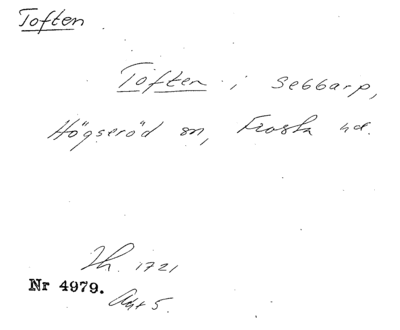 Toften
Toften i Sebbarp,
Högseröd sn, Frosta hd.
Th. 1721
Nr 4979.
Akt 5.